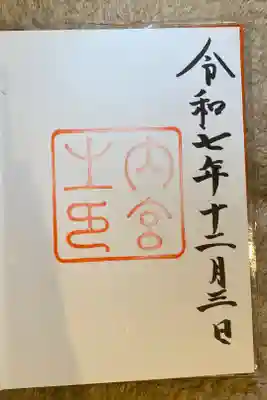 令和七年十二月三日
内宮
之印